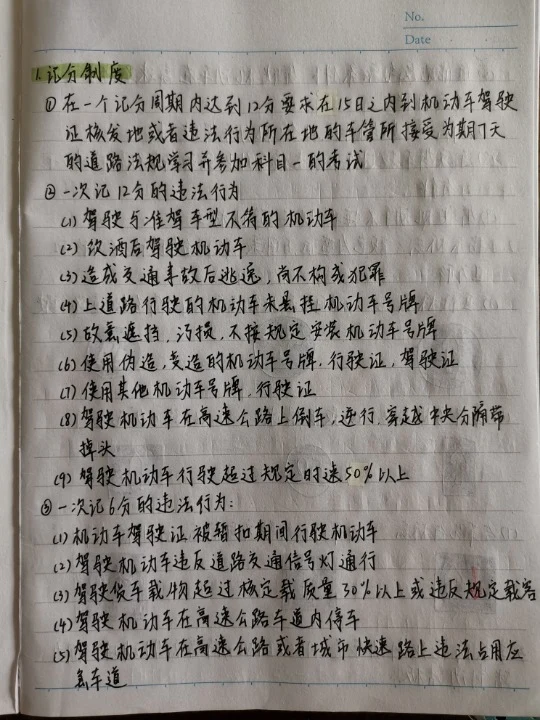 No.
Date
1.记分制度
① 在一个记分周期内达到12分要求在15日之内到机动车驾驶
证核发地或者违法行为所在地的车管所接受为期7天
的道路法规学习并参加科目一的考试
② 一次记12分的违法行为
(1) 驾驶与准驾车型不符的机动车
(2) 饮酒后驾驶机动车
(3) 造成交通事故后逃逸，尚不构成犯罪
(4) 上道路行驶的机动车未悬挂机动车号牌
(5) 故意遮挡，污损，不按规定安装机动车号牌
(6) 使用伪造，变造的机动车号牌，行驶证，驾驶证
(7) 使用其他机动车号牌，行驶证
(8) 驾驶机动车在高速公路上倒车，逆行，穿越中央分隔带
掉头
(9) 驾驶机动车行驶超过规定时速50%以上
③ 一次记6分的违法行为：
(1) 机动车驾驶证被暂扣期间行驶机动车
(2) 驾驶机动车违反道路交通信号灯通行
(3) 驾驶货车载物超过核定载质量30%以上或违反规定载客
(4) 驾驶机动车在高速公路车道内停车
(5) 驾驶机动车在高速公路或者城市快速路上违法占用应
急车道